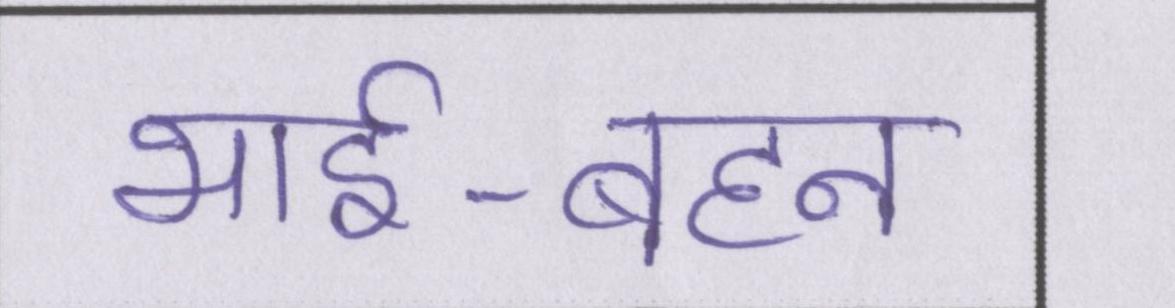 भाई-बहन